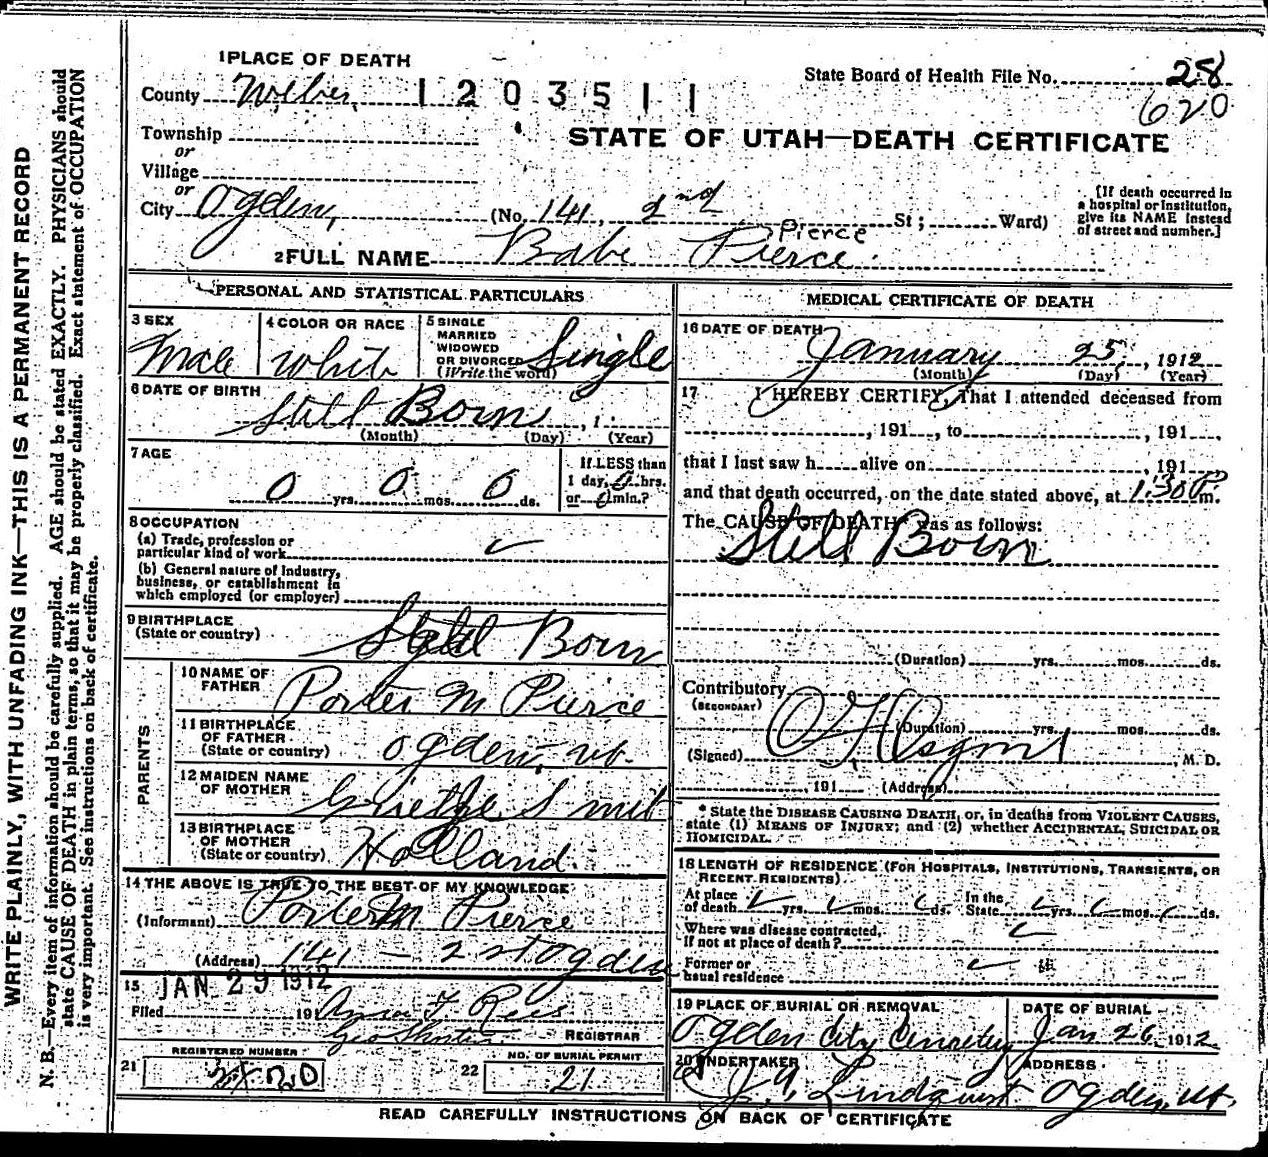 1 PLACE OF DEATH
State Board of Health File No. 28
County Weber 1203511
620
Township
STATE OF UTAH—DEATH CERTIFICATE
or
Village
or
City Ogden, (No. 141, 2nd St; Ward)
[If death occurred in a hospital or institution, give its NAME instead of street and number.]
Pierce
2 FULL NAME Babe Pierce
PERSONAL AND STATISTICAL PARTICULARS
3 SEX Male
4 COLOR OR RACE White
5 SINGLE MARRIED WIDOWED OR DIVORCED (Write the word) Single
6 DATE OF BIRTH Still Born, 1
(Month) (Day) (Year)
7 AGE 0 yrs. 0 mos. 0 ds.
If LESS than 1 day, 0 hrs. or 0 min.?
8 OCCUPATION
(a) Trade, profession or
particular kind of work ✓
(b) General nature of Industry,
business, or establishment in
which employed (or employer)
9 BIRTHPLACE
(State or country) Still Born
PARENTS
10 NAME OF FATHER Porter M Pierce
11 BIRTHPLACE OF FATHER (State or country) Ogden, Ut.
12 MAIDEN NAME OF MOTHER Grietje Smit
13 BIRTHPLACE OF MOTHER (State or country) Holland.
14 THE ABOVE IS TRUE TO THE BEST OF MY KNOWLEDGE
(Informant) Porter M Pierce
(Address) 141 - 2 st Ogden
15 JAN 29 1912
Filed 191 Anna F Rees
REGISTRAR
REGISTERED NUMBER
21 20
NO. OF BURIAL PERMIT
22 21
MEDICAL CERTIFICATE OF DEATH
16 DATE OF DEATH
January 25, 1912
(Month) (Day) (Year)
17 I HEREBY CERTIFY, That I attended deceased from
, 191 , to , 191 ,
that I last saw h alive on , 191
and that death occurred, on the date stated above, at 1:30 P m.
The CAUSE OF DEATH* was as follows:
Still Born
(Duration) yrs. mos. ds.
Contributory
(SECONDARY)
(Duration) yrs. mos. ds.
(Signed) , M. D.
, 191 (Address)
* State the DISEASE CAUSING DEATH, or, in deaths from VIOLENT CAUSES,
state (1) MEANS OF INJURY; and (2) whether ACCIDENTAL, SUICIDAL OR
HOMICIDAL.
18 LENGTH OF RESIDENCE (FOR HOSPITALS, INSTITUTIONS, TRANSIENTS, OR
RECENT RESIDENTS).
At place of death yrs. mos. ds. In the State yrs. mos. ds.
Where was disease contracted,
If not at place of death?
Former or
usual residence
19 PLACE OF BURIAL OR REMOVAL
Ogden City Cemetery
DATE OF BURIAL
Jan 26, 1912
20 UNDERTAKER
Lindquist
ADDRESS
Ogden, Ut.
READ CAREFULLY INSTRUCTIONS ON BACK OF CERTIFICATE
WRITE PLAINLY, WITH UNFADING INK—THIS IS A PERMANENT RECORD
N. B.—Every item of information should be carefully supplied. AGE should be stated EXACTLY. PHYSICIANS should
state CAUSE OF DEATH in plain terms, so that it may be properly classified. Exact statement of OCCUPATION
is very important. See instructions on back of certificate.